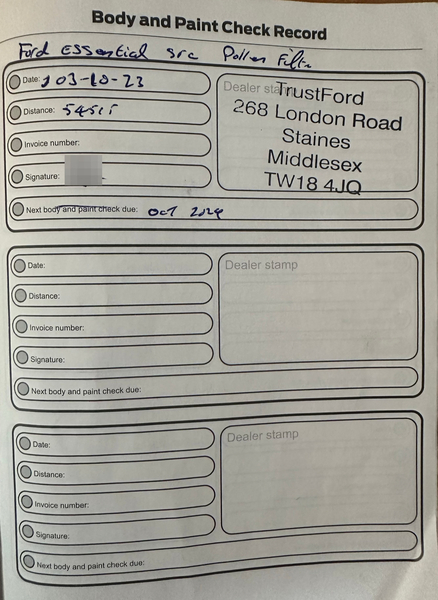 Body and Paint Check Record
Ford Essential src Pollen Filter
Date: 03-10-23
Distance: 54515
Invoice number:
Signature:
Dealer stamp
TrustFord
268 London Road
Staines
Middlesex
TW18 4JQ
Next body and paint check due: OCT 2024
Date:
Distance:
Invoice number:
Signature:
Dealer stamp
Next body and paint check due:
Date:
Distance:
Invoice number:
Signature:
Dealer stamp
Next body and paint check due: